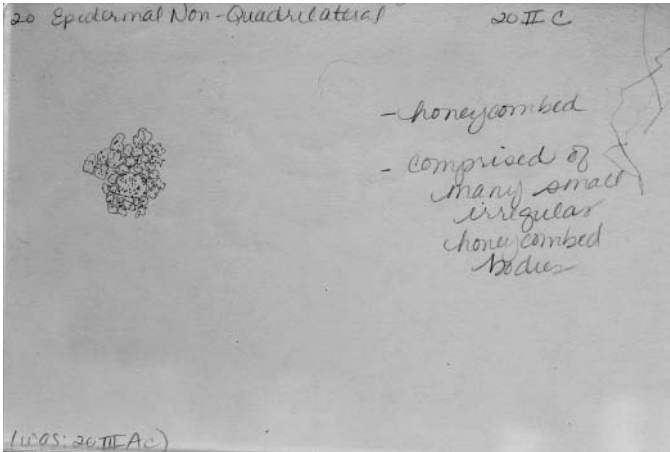 20 Epidermal Non-Quadrilateral 20 II C
- honeycombed
- comprised of
many small
irregular
honeycombed
bodies
(was: 20 III Ac)